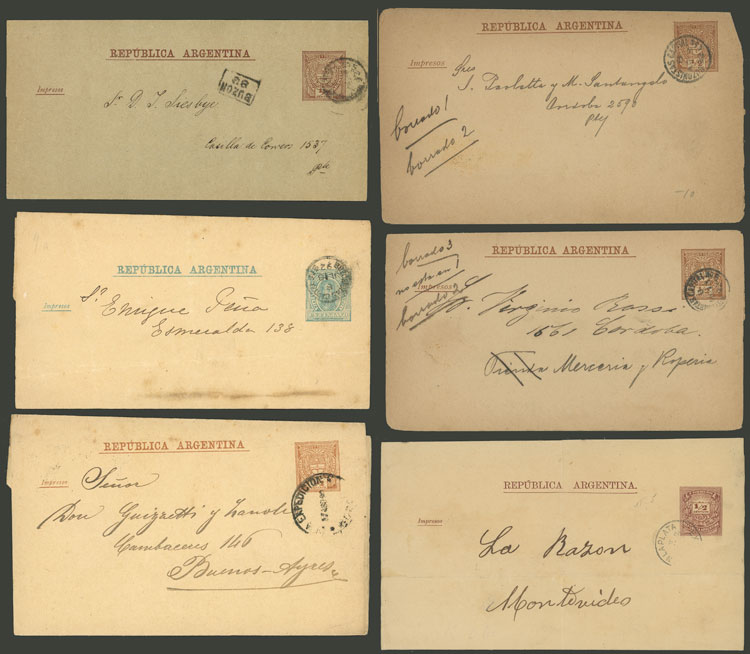 REPÚBLICA ARGENTINA
Impresos
BUZON
Sr D. J.
Casilla de Correo 1537
REPÚBLICA ARGENTINA
Impresos
Sres
S. Barletta y M. Santangelo
2590
borrado 1
borrado 2
REPÚBLICA ARGENTINA
Impresos
Sr Enrique Peña
Esmeralda 138
borrado 3
borrado 2
REPÚBLICA ARGENTINA
Impresos
Virginio Rossi
1561 Cordoba
Tienda Merceria y Roperia
REPÚBLICA ARGENTINA
Impresos
Señor
Don Guizzetti y
Cambaceres 1146
Buenos-Ayres
EXPEDICION
REPÚBLICA ARGENTINA.
Impresos
1/2
LA PLATA
La Razon
Montevideo